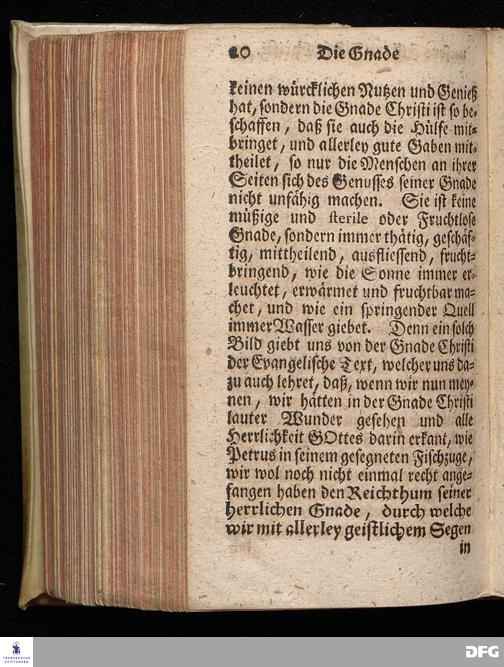 20 Die Gnade
keinen würcklichen Nutzen und Genieß
hat, sondern die Gnade Christi ist so be-
schaffen, daß sie auch die Hülfe mit-
bringet, und allerley gute Gaben mit-
theilet, so nur die Menschen an ihrer
Seiten sich des Genusses seiner Gnade
nicht unfähig machen. Sie ist keine
müßige und sterile oder Fruchtlose
Gnade, sondern immer thätig, geschäf-
tig, mittheilend, ausfliessend, frucht-
bringend, wie die Sonne immer er-
leuchtet, erwärmet und fruchtbar ma-
chet, und wie ein springender Quell
immer Wasser giebet. Denn ein solch
Bild giebt uns von der Gnade Christi
der Evangelische Text, welcher uns da-
zu auch lehret, daß, wenn wir nun mey-
nen, wir hätten in der Gnade Christi
lauter Wunder gesehen und alle
Herrlichkeit GOttes darin erkant, wie
Petrus in seinem gesegneten Fischzuge,
wir wol noch nicht einmal recht ange-
fangen haben den Reichthum seiner
herrlichen Gnade, durch welche
wir mit allerley geistlichem Segen
in
FRANCKESCHE STIFTUNGEN
DFG